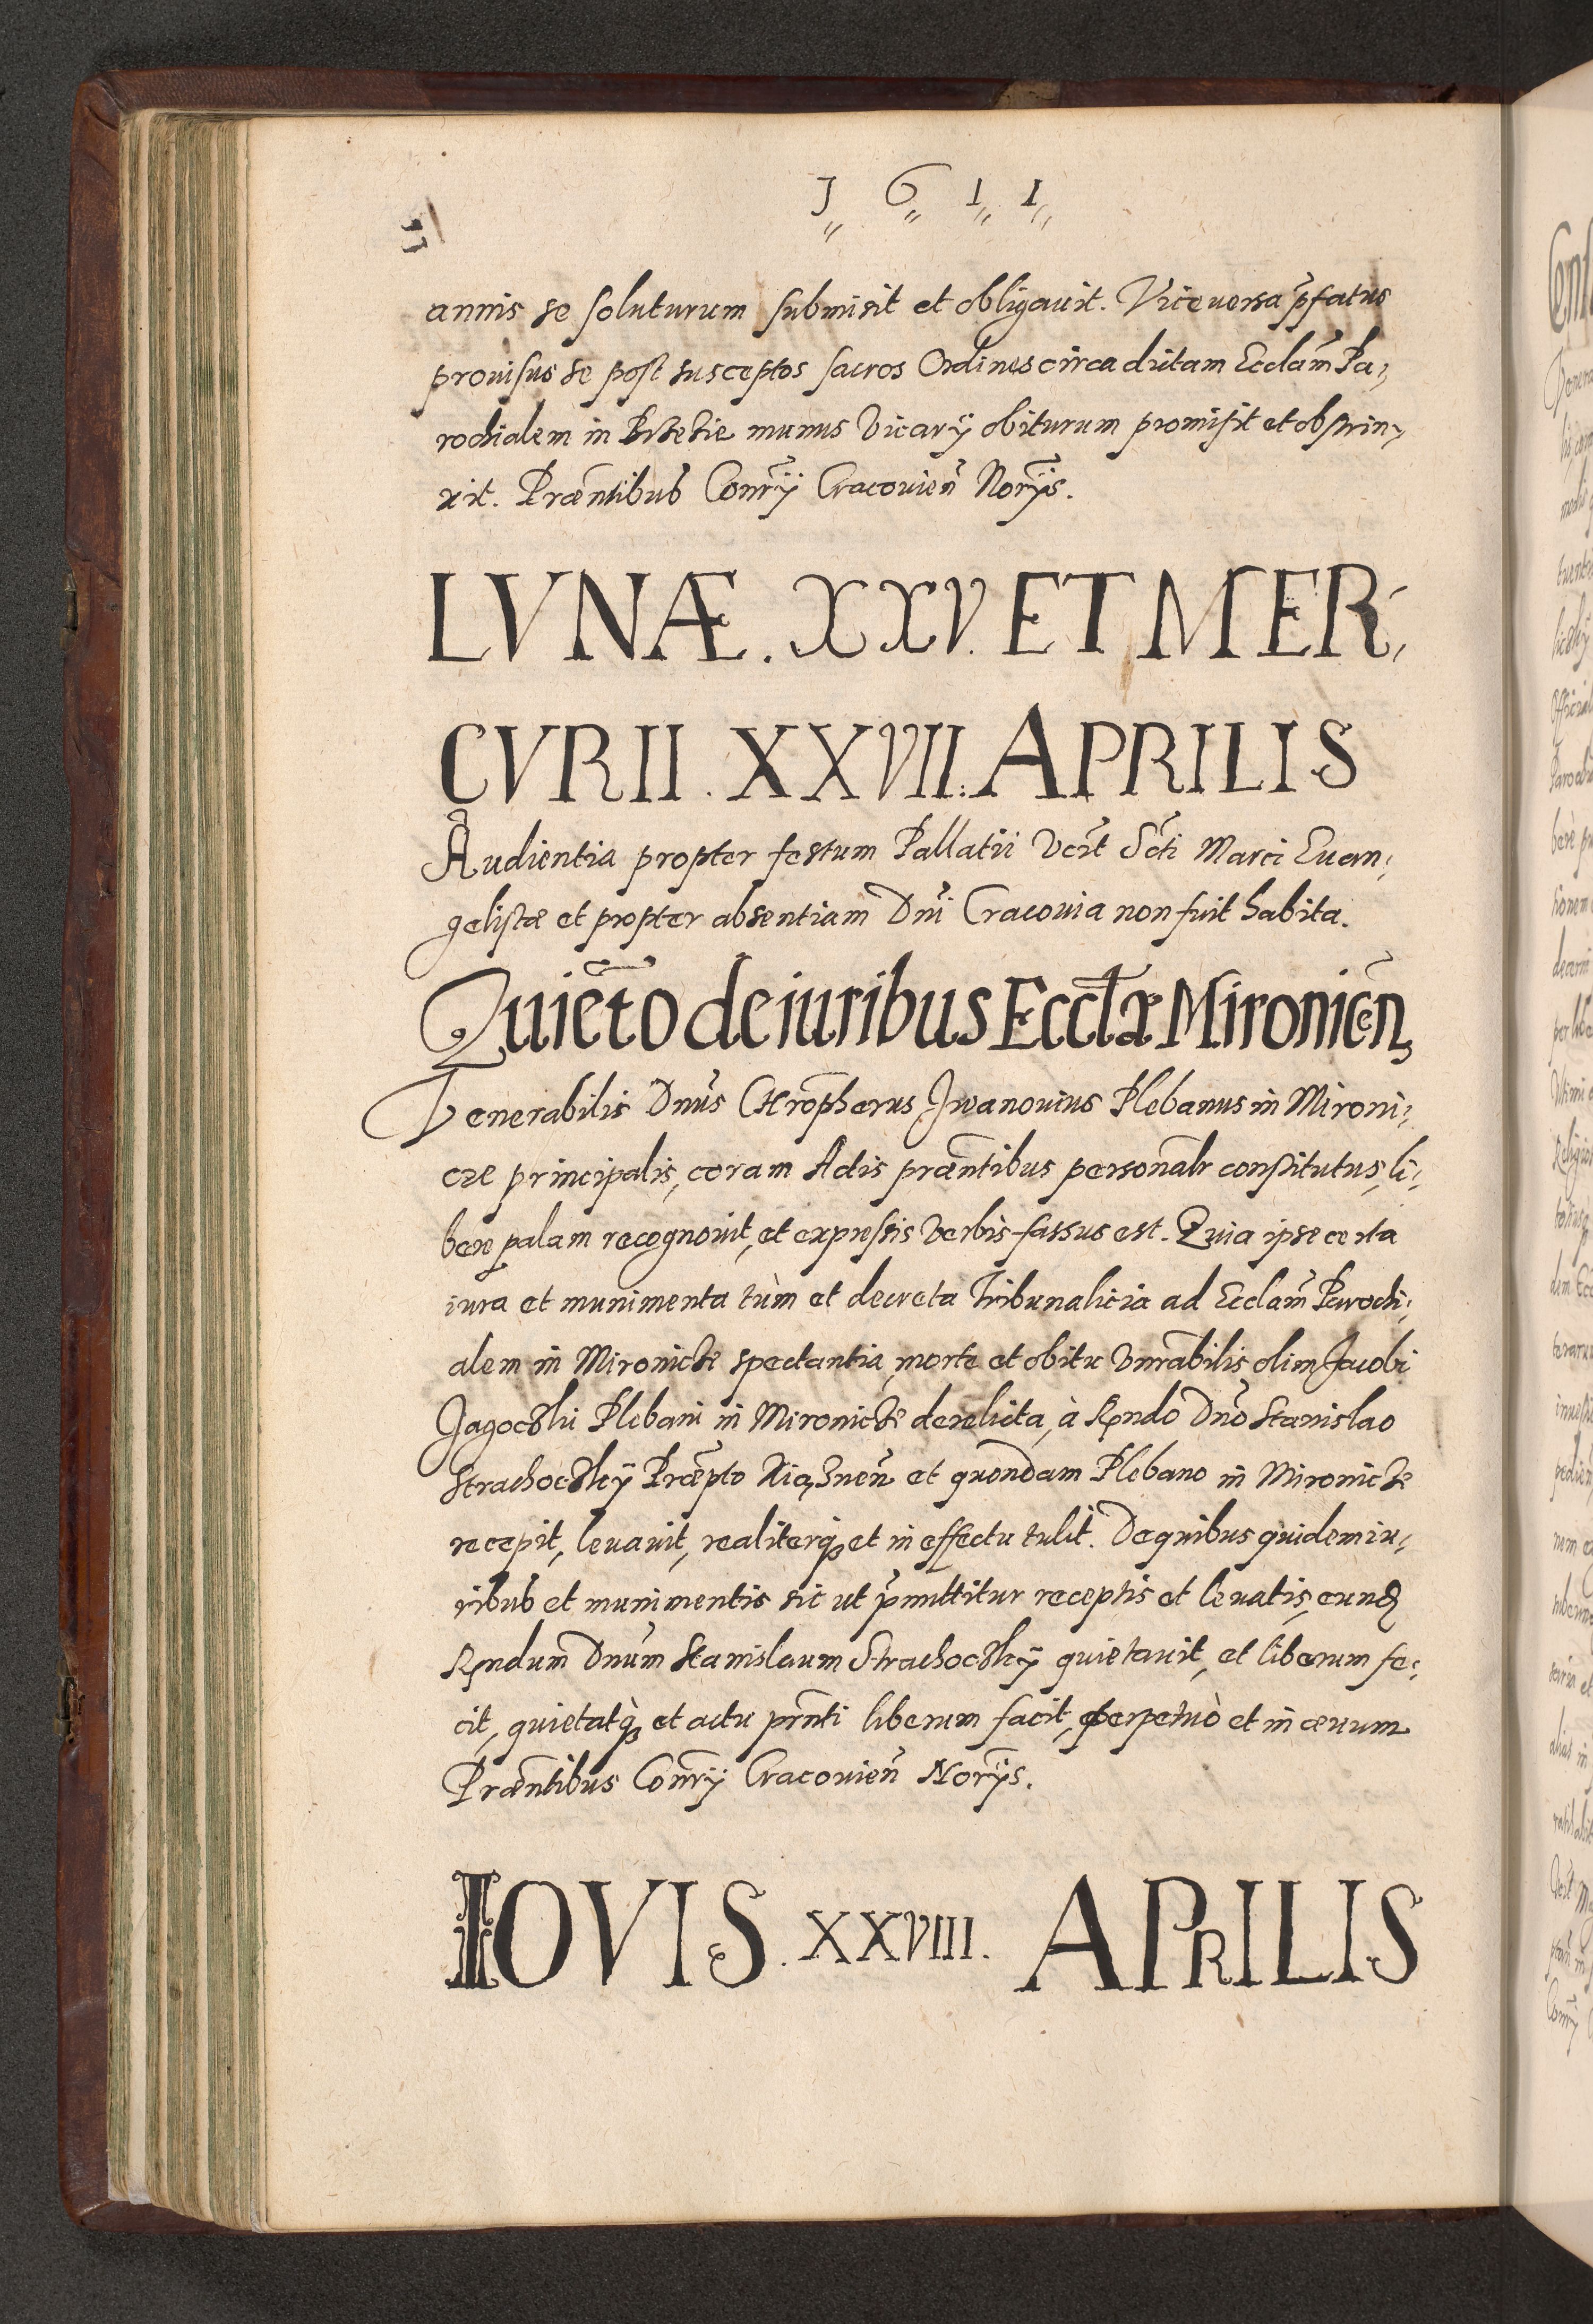 1611
annis se soluturum submisit et obligauit. Vice uersa p̃fatus
prouisus se post susceptos sacros Ordines circa dictam Ecclam̃ Pa-
rochialem in munus Vicarÿ obiturum promisit et obstrin-
xit. Præntibus Conr̃ÿ Cracouien̄ Norÿs.
LVNÆ. XXV. ET MER-
CVRII. XXVII. APRILIS
Audientia propter festum Pallatii Vcrt̃ Scti Marci Euan-
gelistæ et propter absentiam Dnī Cracouia non fuit habita.
Quiet̃o de iuribus Eccłæ Mironicen̄
Venerabilis Dnūs Chrõpherus Jwanouius Plebanus in Mironi-
cze principalis, coram Actis præntibus personalr̃ constitutus, li-
bere palam recognouit, et expressis verbis fassus est. Quia ipse certa
iura et munimenta tùm et decreta Tribunalicia ad Ecclam̃ Parochi-
alem in Mironicze spectantia, morte et obitu Vnrabilis olim Jacobi
Jagoczkii Plebani in Mironicze derelicta, à Rñdo Dnō Stanislao
Strachoczkÿ Præpto Xiąznen̄ et quondam Plebano in Mironicze
recepit, leuauit, realiterq̃ et in effectu tulit. De quibus quidem iu-
ribus et munimentis sic ut p̃mittitur receptis et leuatis, eund
Rñdum Dnūm Stanislaum Strachoczkÿ quietauit, et liberum fe-
cit, quietatq̃ et actu prñti liberum facit, perpetuò et in æuum
Præntibus Conr̃ÿ Cracouien̄ Norÿs.
IOVIS. XXVIII. APRILIS